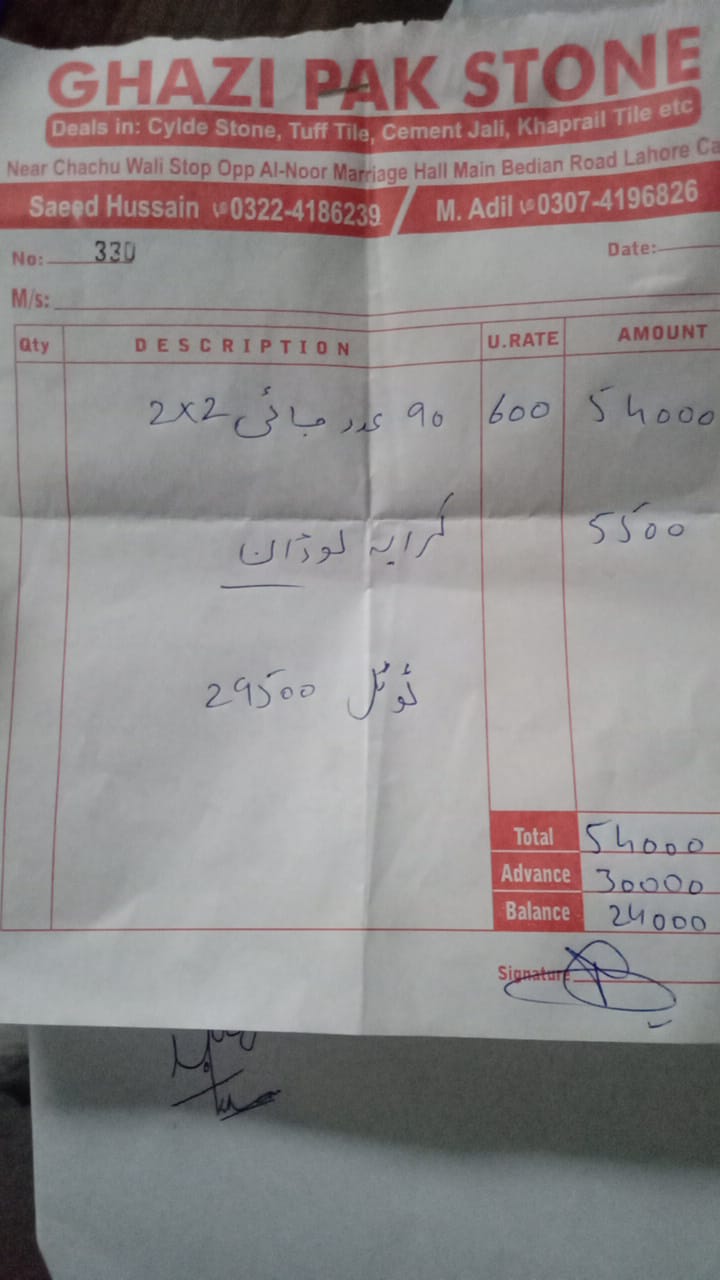 GHAZI PAK STONE
Deals in: Cylde Stone, Tuff Tile, Cement Jali, Khaprail Tile etc
Near Chachu Wali Stop Opp Al-Noor Marriage Hall Main Bedian Road Lahore Ca
Saeed Hussain 0322-4186239 / M. Adil 0307-4196826
No: 330 Date:
M/s:
Qty DESCRIPTION U.RATE AMOUNT
۹۰ عدد 2x2 600 54000
کرایہ 5500
ٹوٹل 29500
Total 54000
Advance 30000
Balance 24000
Signature